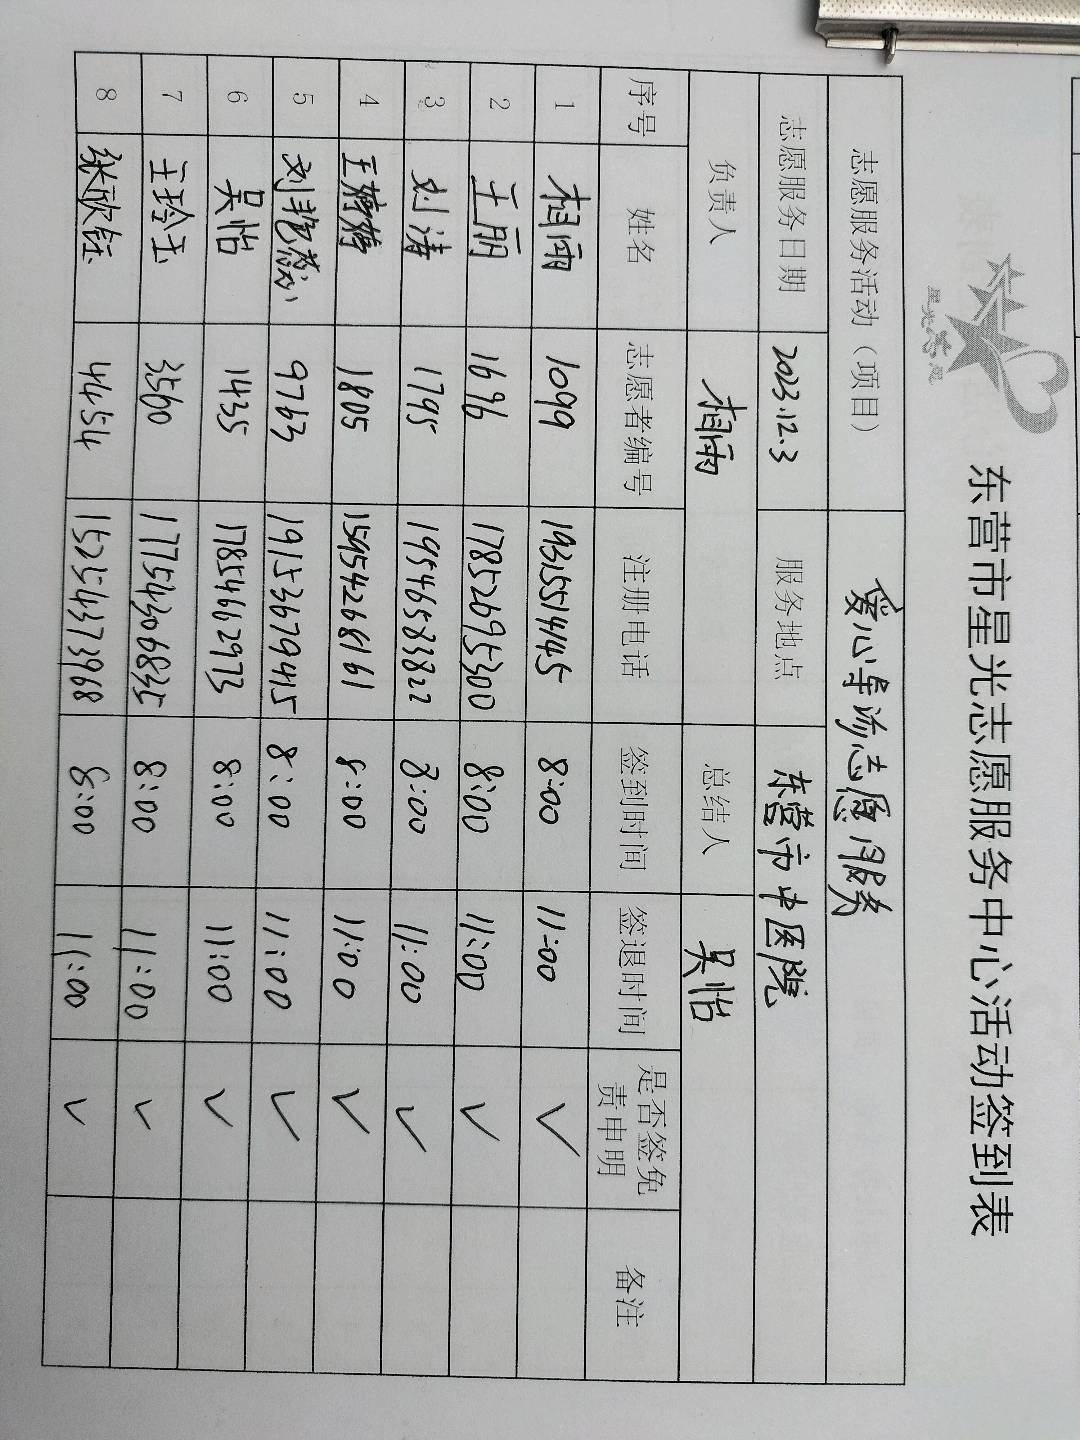 星光志愿
东营市星光志愿服务中心活动签到表
志愿服务活动（项目） 爱心导诊志愿服务
志愿服务日期 2023.12.3 服务地点 东营市中医院
负责人 相雨 总结人 吴怡
序号 姓名 志愿者编号 注册电话 签到时间 签退时间 是否签免责申明 备注
1 相雨 1099 19315514145 8:00 11:00 ✓
2 王丽 1696 17852695300 8:00 11:00 ✓
3 刘涛 1795 19546583822 8:00 11:00 ✓
4 王婷婷 1805 15954268161 8:00 11:00 ✓
5 刘艳 9763 19153679415 8:00 11:00 ✓
6 吴怡 1435 17854662973 8:00 11:00 ✓
7 王玲玉 3560 17754306835 8:00 11:00 ✓
8 张欣钰 4454 15254373968 8:00 11:00 ✓